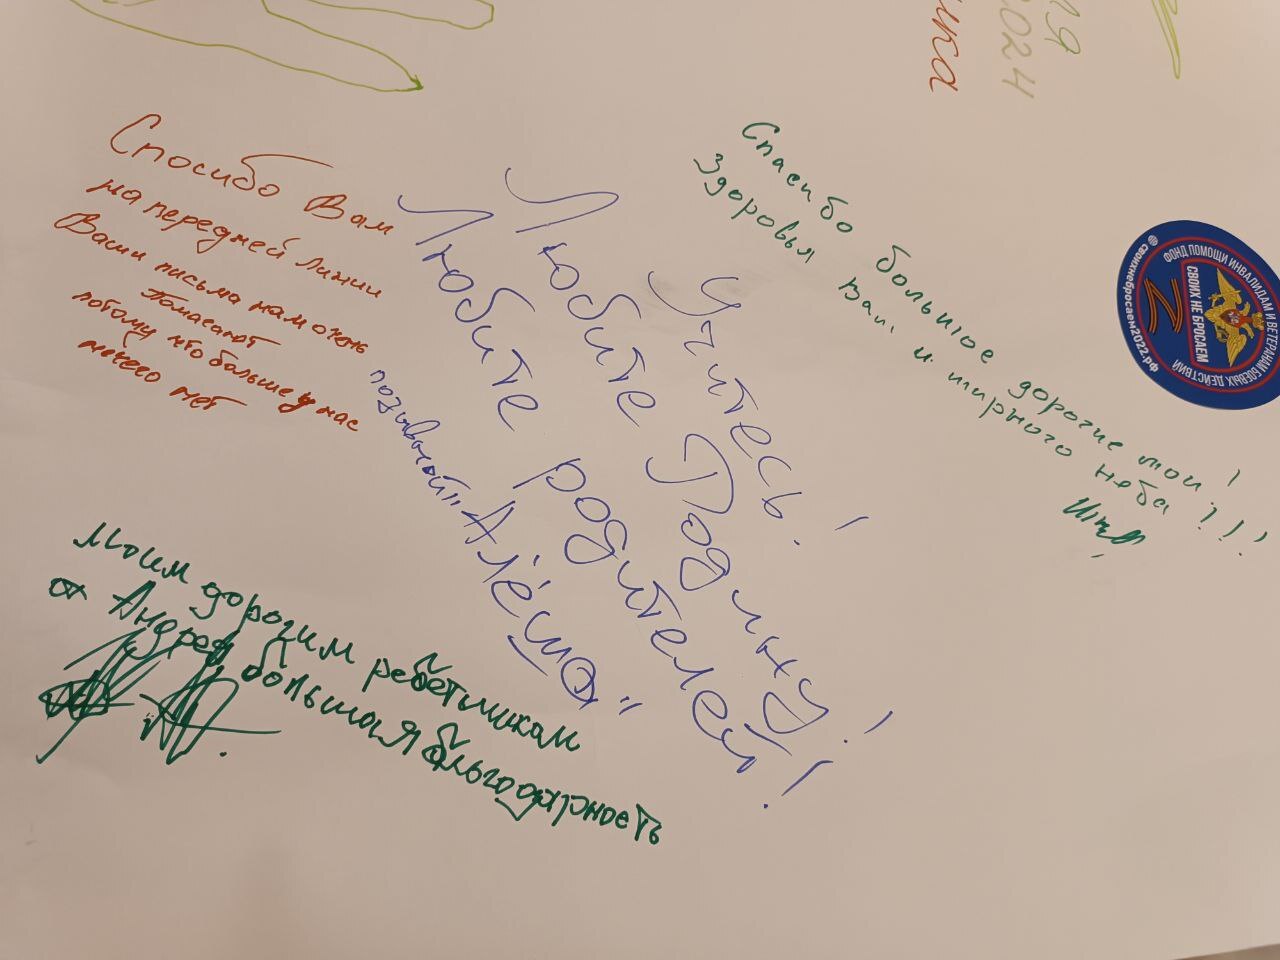 ия
2024
ика
Спосибо Вам
на передней линии
Ваши письма нам очень
Помагают
потому что больше у нас
нечего нет
Учитесь!
Любите Родину!
Любите родителей!
позывной "Алёша"
Спасибо большое дорогие мои!
Здоровья Вам, и мирного неба!!!
Моим дорогим ребетишкам
от Андрея большая благодарность
ФОНД ПОМОЩИ ИНВАЛИДАМ И ВЕТЕРАНАМ БОЕВЫХ ДЕЙСТВИЙ
СВОИХ НЕ БРОСАЕМ
Z
своихнебросаем2022.рф